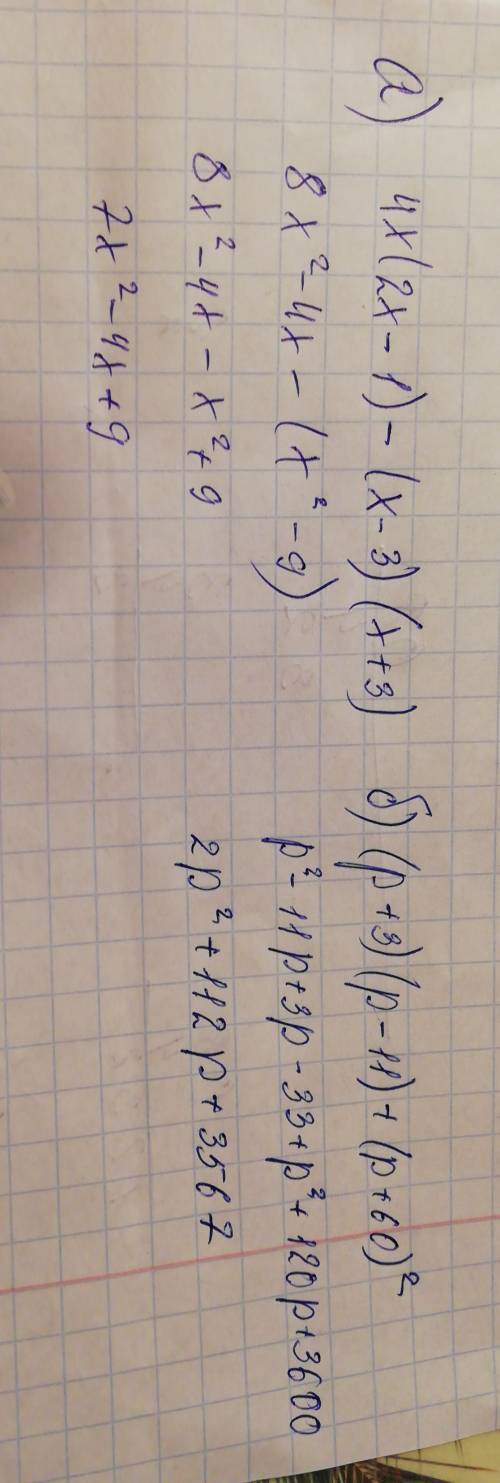 а) 4x(2x-1)-(x-3)(x+3)
8x²-4x-(x²-9)
8x²-4x-x²+9
7x²-4x+9
б) (p+3)(p-11)+(p+60)²
p²-11p+3p-33+p²+120p+3600
2p²+112p+3567